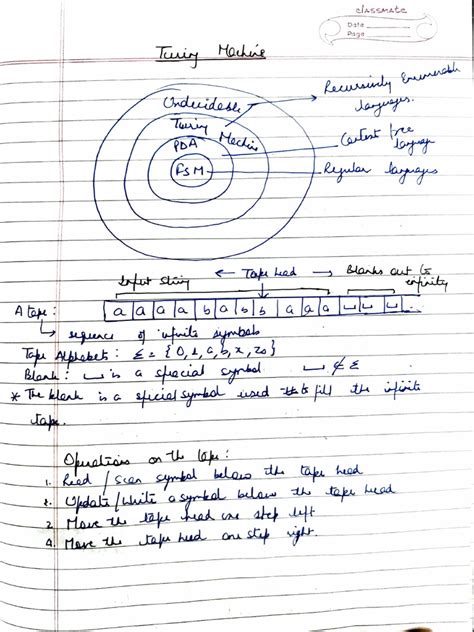 classmate
Date
Page
Turing Machine
Undecidable
Turing Machine
PDA
FSM
Recursively Enumerable
languages.
Context free
language
Regular languages
Input string
← Tape head →
Blanks out to
infinity
A tape:
a a a a b a b b a a a ⊔ ⊔ ⊔ ...
↳ sequence of infinite symbols
Tape Alphabets: Σ = {0, 1, a, b, x, z₀}
Blank: ⊔ is a special symbol ⊔ ∉ Σ
* The blank is a special symbol used to fill the infinite
tape.
Operations on the tape:
1. Read / Scan symbol below the tape head
2. Update / Write a symbol below the tape head
3. Move the tape head one step left
4. Move the tape head one step right.